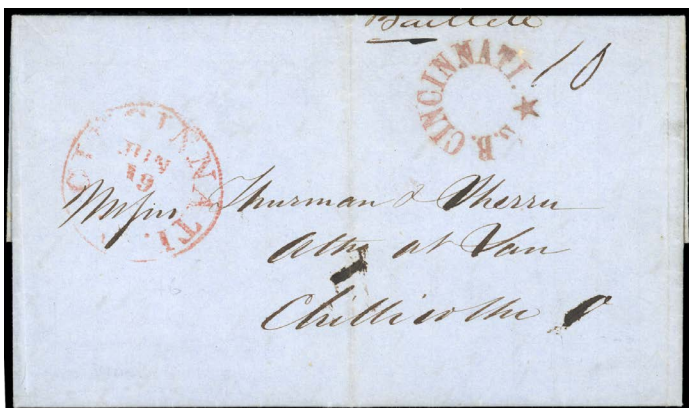 S.B. CINCINNATI.
10
CINCINNATI
JUN
19
Messrs Thurman & Sherer
Attys at Law
Chillicothe O